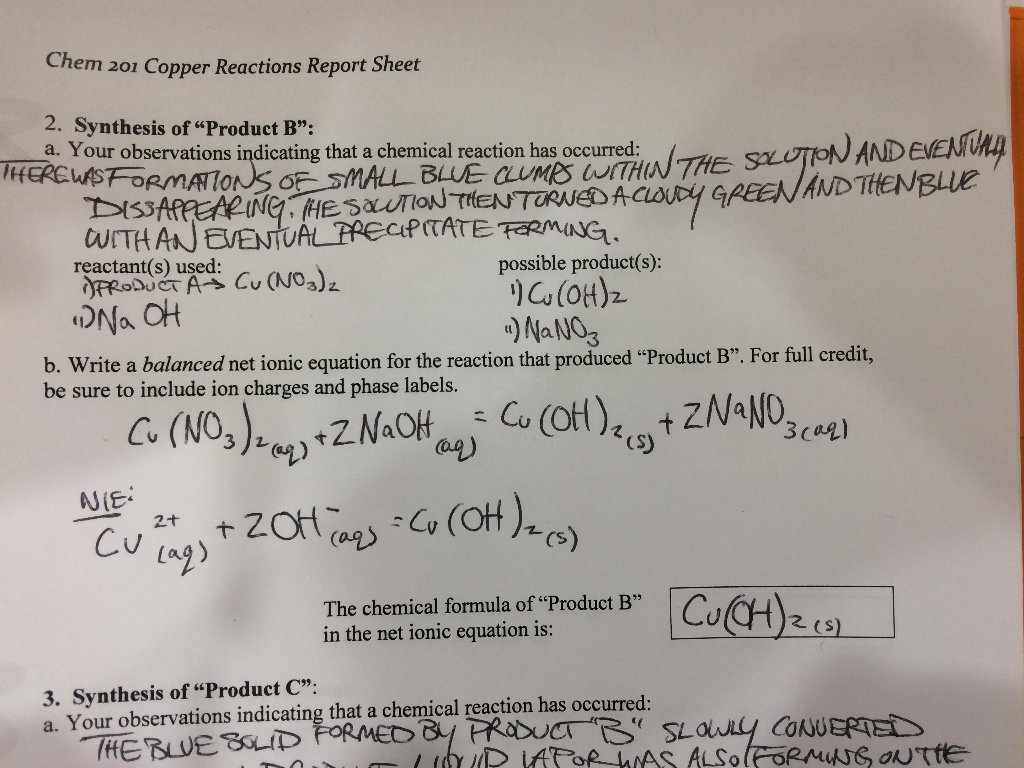 Chem 201 Copper Reactions Report Sheet
2. Synthesis of “Product B”:
a. Your observations indicating that a chemical reaction has occurred:
THERE WAS FORMATIONS OF SMALL BLUE CLUMPS WITHIN THE SOLUTION AND EVENTUALLY
DISSAPPEARING. THE SOLUTION THEN TURNED A CLOUDY GREEN AND THEN BLUE
WITH AN EVENTUAL PRECIPITATE FORMING.
reactant(s) used: possible product(s):
i) PRODUCT A → Cu(NO3)2 i) Cu(OH)2
ii) NaOH ii) NaNO3
b. Write a balanced net ionic equation for the reaction that produced “Product B”. For full credit,
be sure to include ion charges and phase labels.
Cu(NO3)2(aq) + 2NaOH(aq) = Cu(OH)2(s) + 2NaNO3(aq)
NIE:
Cu2+(aq) + 2OH-(aq) = Cu(OH)2(s)
The chemical formula of “Product B” Cu(OH)2(s)
in the net ionic equation is:
3. Synthesis of “Product C”:
a. Your observations indicating that a chemical reaction has occurred:
THE BLUE SOLID FORMED BY PRODUCT "B" SLOWLY CONVERTED
LIQUID VAPOR WAS ALSO FORMING ON THE